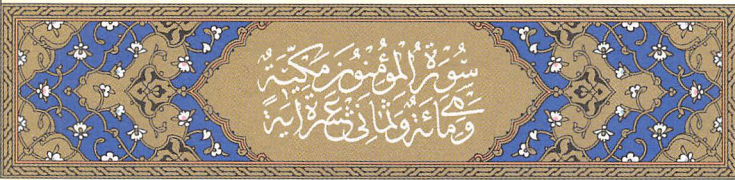 سُورَةُ الْمُؤْمِنُونَ مَكِّيَّةٌ
وَهِيَ مِائَةٌ وَثَمَانِيَ عَشْرَةَ آيَةً